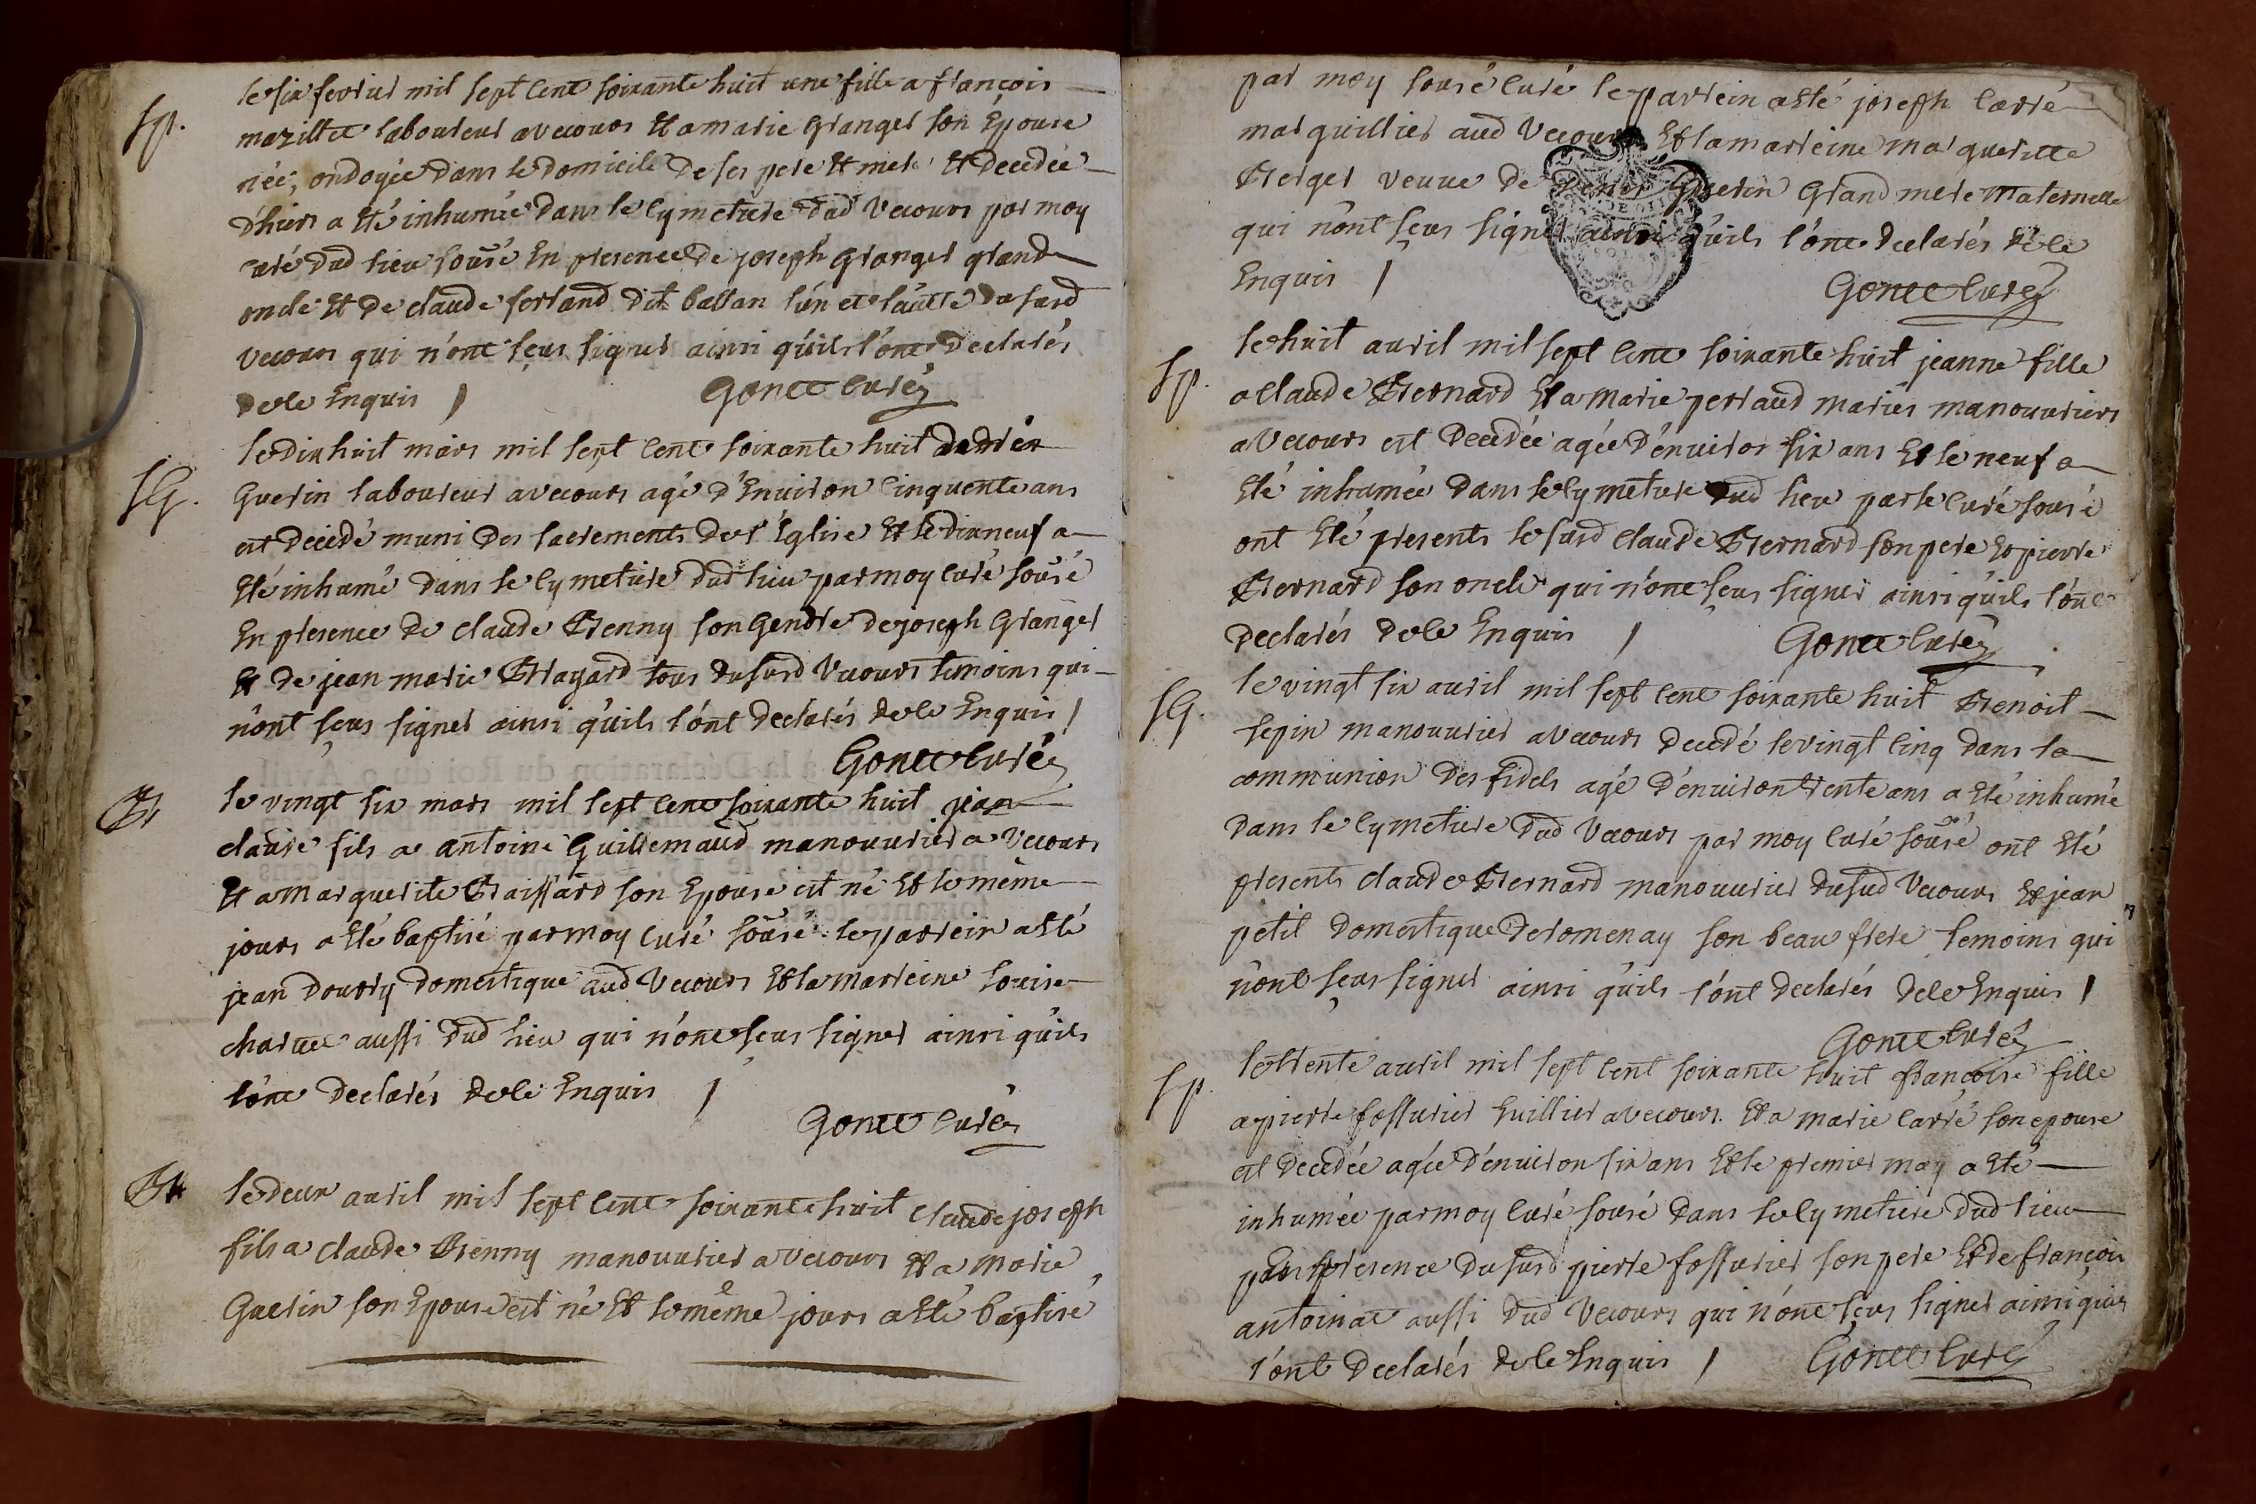 Sp.
le six fevrier mil sept cent soixante huit une fille a françois
mazillet laboureur a vecours et a marie Granger son Epouse
née, ondoyée dans le domicile de ses pere et mere et decedée
d'hiers a eté inhumée dans le cymetiere dud Vecours par moy
curé dud lieu sousé En presence de joseph Granger grand
oncle et de claude ferland dit ballan l'un et l'autre dususd
vecours qui n'ont sçus signer ainsi qu'ils l'ont declarés
de ce Enquis /
Gonet curé
SG.
le dix huit mars mil sept cent soixante huit
Guerin laboureur a vecours agé d'Environ cinquente ans
est decedé muni des sacrements de l'Eglise et le dix neuf a
Eté inhumé dans le cymetiere dud lieu par moy curé sousé
En presence de claude Brenny son Gendre de joseph Granger
et de jean marie Brayard tous dusud Vecours temoins qui
n'ont sçus signer ainsi qu'ils l'ont declarés de ce Enquis /
Gonet curé
Bt
le vingt six mars mil sept cent soixante huit jean
claude fils a antoine Guillemaud manouvrier a Vecours
et a Marguerite Braissard son Epouse est né et le même
jours a eté baptisé par moy curé sousé le parrein a eté
jean Doury domestique aud Vecours et la marreine Louise
charvet aussi dud lieu qui n'ont sçus signer ainsi qu'ils
l'ont declarés de ce Enquis /
Gonet curé
Bt
le deux avril mil sept cent soixante huit claude joseph
fils a claude Brenny manouvrier a vecours et a Marie
Guerin son Epouse est né et le même jours a eté baptisé
par moy sousé curé le parrein a eté joseph carré
marguillier aud Vecours et la marreine marguerite
Berger veuve de Guerin Grand mere maternelle
qui n'ont sçus signer ainsi qu'ils l'ont declarés de ce
Enquis /
Gonet curé
Sp.
le huit avril mil sept cent soixante huit jeanne fille
a claude Bernard et a Marie perraud mariés manouvriers
a Vecours est decedée agée d'environ six ans et le neuf a
Eté inhumée dans le cymetiere dud lieu par le curé sousé
ont Eté presents le susd claude Bernard son pere et pierre
Bernard son oncle qui n'ont sçus signer ainsi qu'ils l'ont
declarés de ce Enquis /
Gonet curé
SG.
le vingt six avril mil sept cent soixante huit Benoit
lepin manouvrier a vecours decedé le vingt cinq dans la
communion des fidels agé d'environ trente ans a eté inhumé
dans le cymetiere dud Vecours par moy curé sousé ont Eté
presents claude Bernard manouvrier dusud Vecours et jean
petit domestique de romenay son beau frere temoins qui
n'ont sçus signer ainsi qu'ils l'ont declarés de ce Enquis /
Gonet curé
Sp.
le trente avril mil sept cent soixante huit françoise fille
a pierre fossurier huillier a vecours et a Marie carré son epouse
est decedée agée d'environ six ans et le premier may a eté
inhumée par moy curé sousé dans le cymetiere dud lieu
presence du susd pierre fossurier son pere et de françois
antoinat aussi dud Vecours qui n'ont sçus signer ainsi qu'ils
l'ont declarés de ce Enquis /
Gonet curé